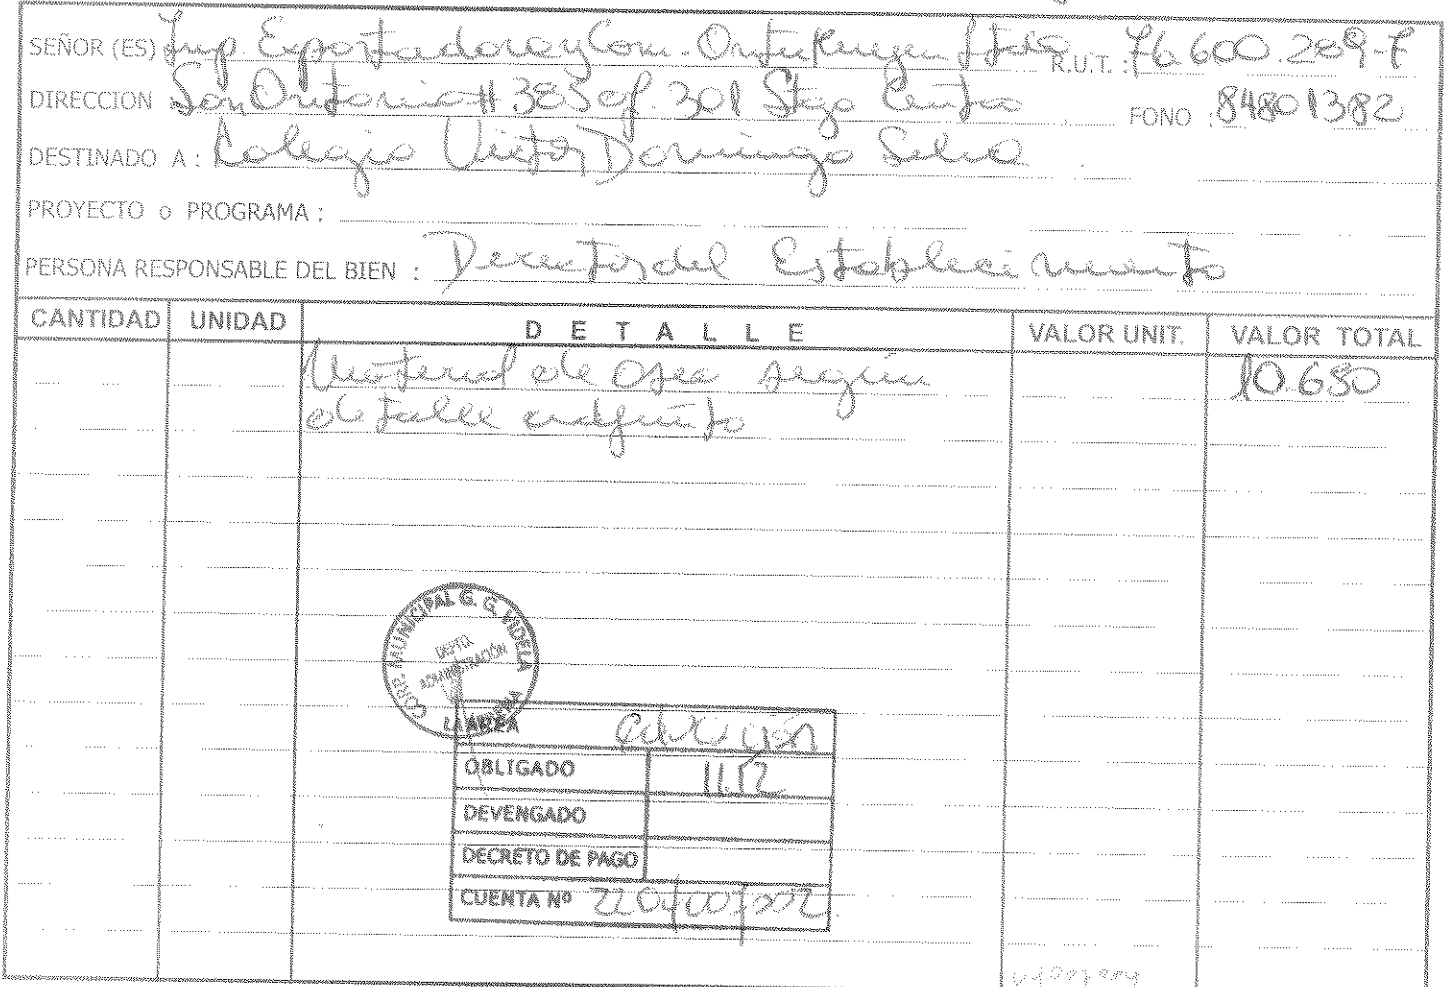 SEÑOR (ES) Imp. Exportadora y Com. Ltda R.U.T. : 76.600.289-7
DIRECCION San Antonio # 385 of. 301 Stgo Centro FONO : 84801382
DESTINADO A : Colegio Victor Domingo Silva
PROYECTO o PROGRAMA :
PERSONA RESPONSABLE DEL BIEN : Director del Establecimiento
CANTIDAD UNIDAD D E T A L L E VALOR UNIT. VALOR TOTAL
Material de Aseo según 10.650
detalle adjunto
CORP. MUNICIPAL G. G. VIDELA
DEPTO.
ADMINISTRACIÓN
Educación
OBLIGADO 11.12
DEVENGADO
DECRETO DE PAGO
CUENTA Nº